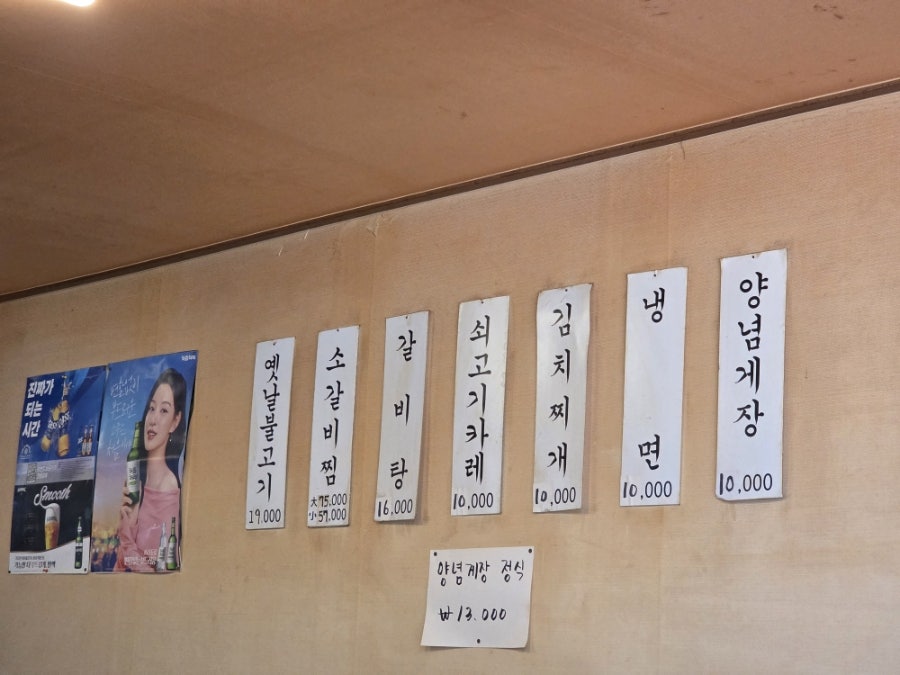 진짜가
되는
시간
Smooth
옛날불고기
19.000
소갈비찜
大 75.000
小 57.000
갈비탕
16,000
쇠고기카레
10,000
김치찌개
10,000
냉면
10,000
양념게장
10,000
양념게장 정식
₩13.000